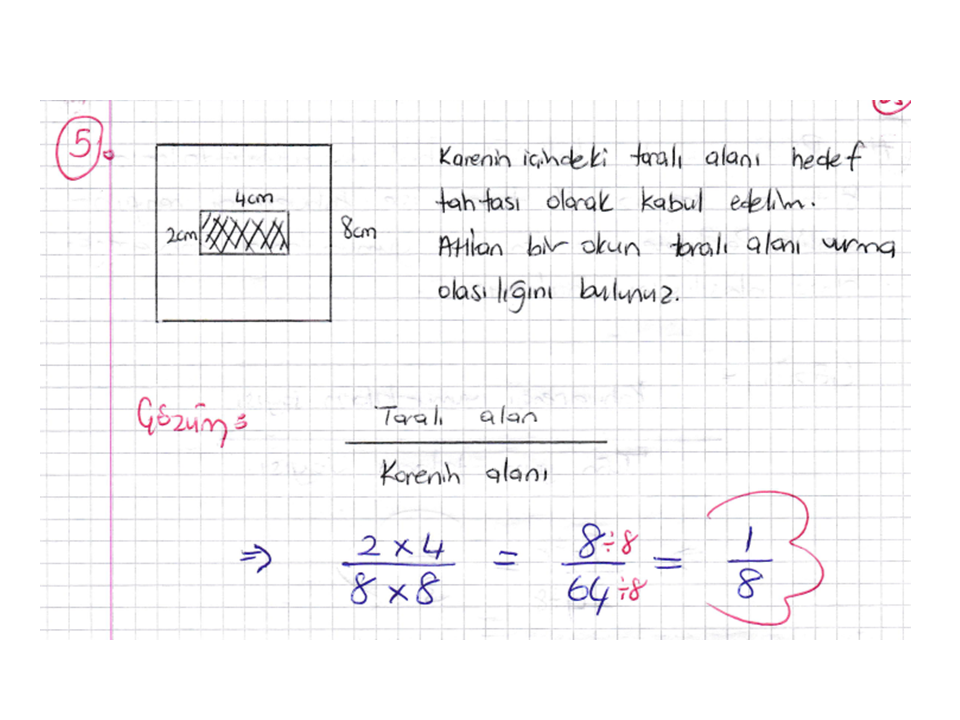 5.
4cm
2cm
8cm
Karenin içindeki taralı alanı hedef
tahtası olarak kabul edelim.
Atılan bir okun taralı alanı vurma
olasılığını bulunuz.
Çözüm:
Taralı alan
Karenin alanı
⇒ 2 x 4 / 8 x 8 = 8÷8 / 64÷8 = 1 / 8